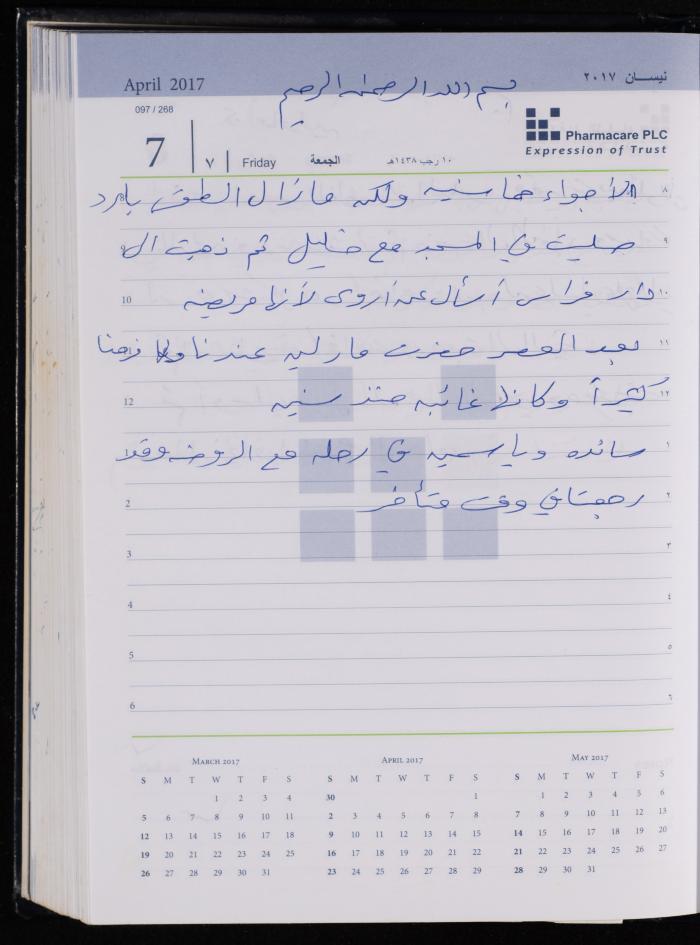 April 2017
نيسان ٢٠١٧
بسم الله الرحمن الرحيم
097 / 268
7 ٧ Friday الجمعة ١٠ رجب ١٤٣٨هـ
Pharmacare PLC
Expression of Trust
الأجواء خماسنيه ولكن مازال الطقس بارد ٨
صليت في المسجد مع خليل ثم ذهبت الى ٩
10 دار فراس أسأل عن أروى لأنها مريضه ١٠
بعد العصر حضرت مارلين عندنا فرحنا ١١
12 كثيراً وكانها غائبه منذ سنين ١٢
سائده وياسمين في رحله مع الروضه وقد ١
2 رجعتا في وقت متأخر ٢
3 ٣
4 ٤
5 ٥
6 ٦
MARCH 2017
S M T W T F S
1 2 3 4
5 6 7 8 9 10 11
12 13 14 15 16 17 18
19 20 21 22 23 24 25
26 27 28 29 30 31
APRIL 2017
S M T W T F S
30 1
2 3 4 5 6 7 8
9 10 11 12 13 14 15
16 17 18 19 20 21 22
23 24 25 26 27 28 29
MAY 2017
S M T W T F S
1 2 3 4 5 6
7 8 9 10 11 12 13
14 15 16 17 18 19 20
21 22 23 24 25 26 27
28 29 30 31